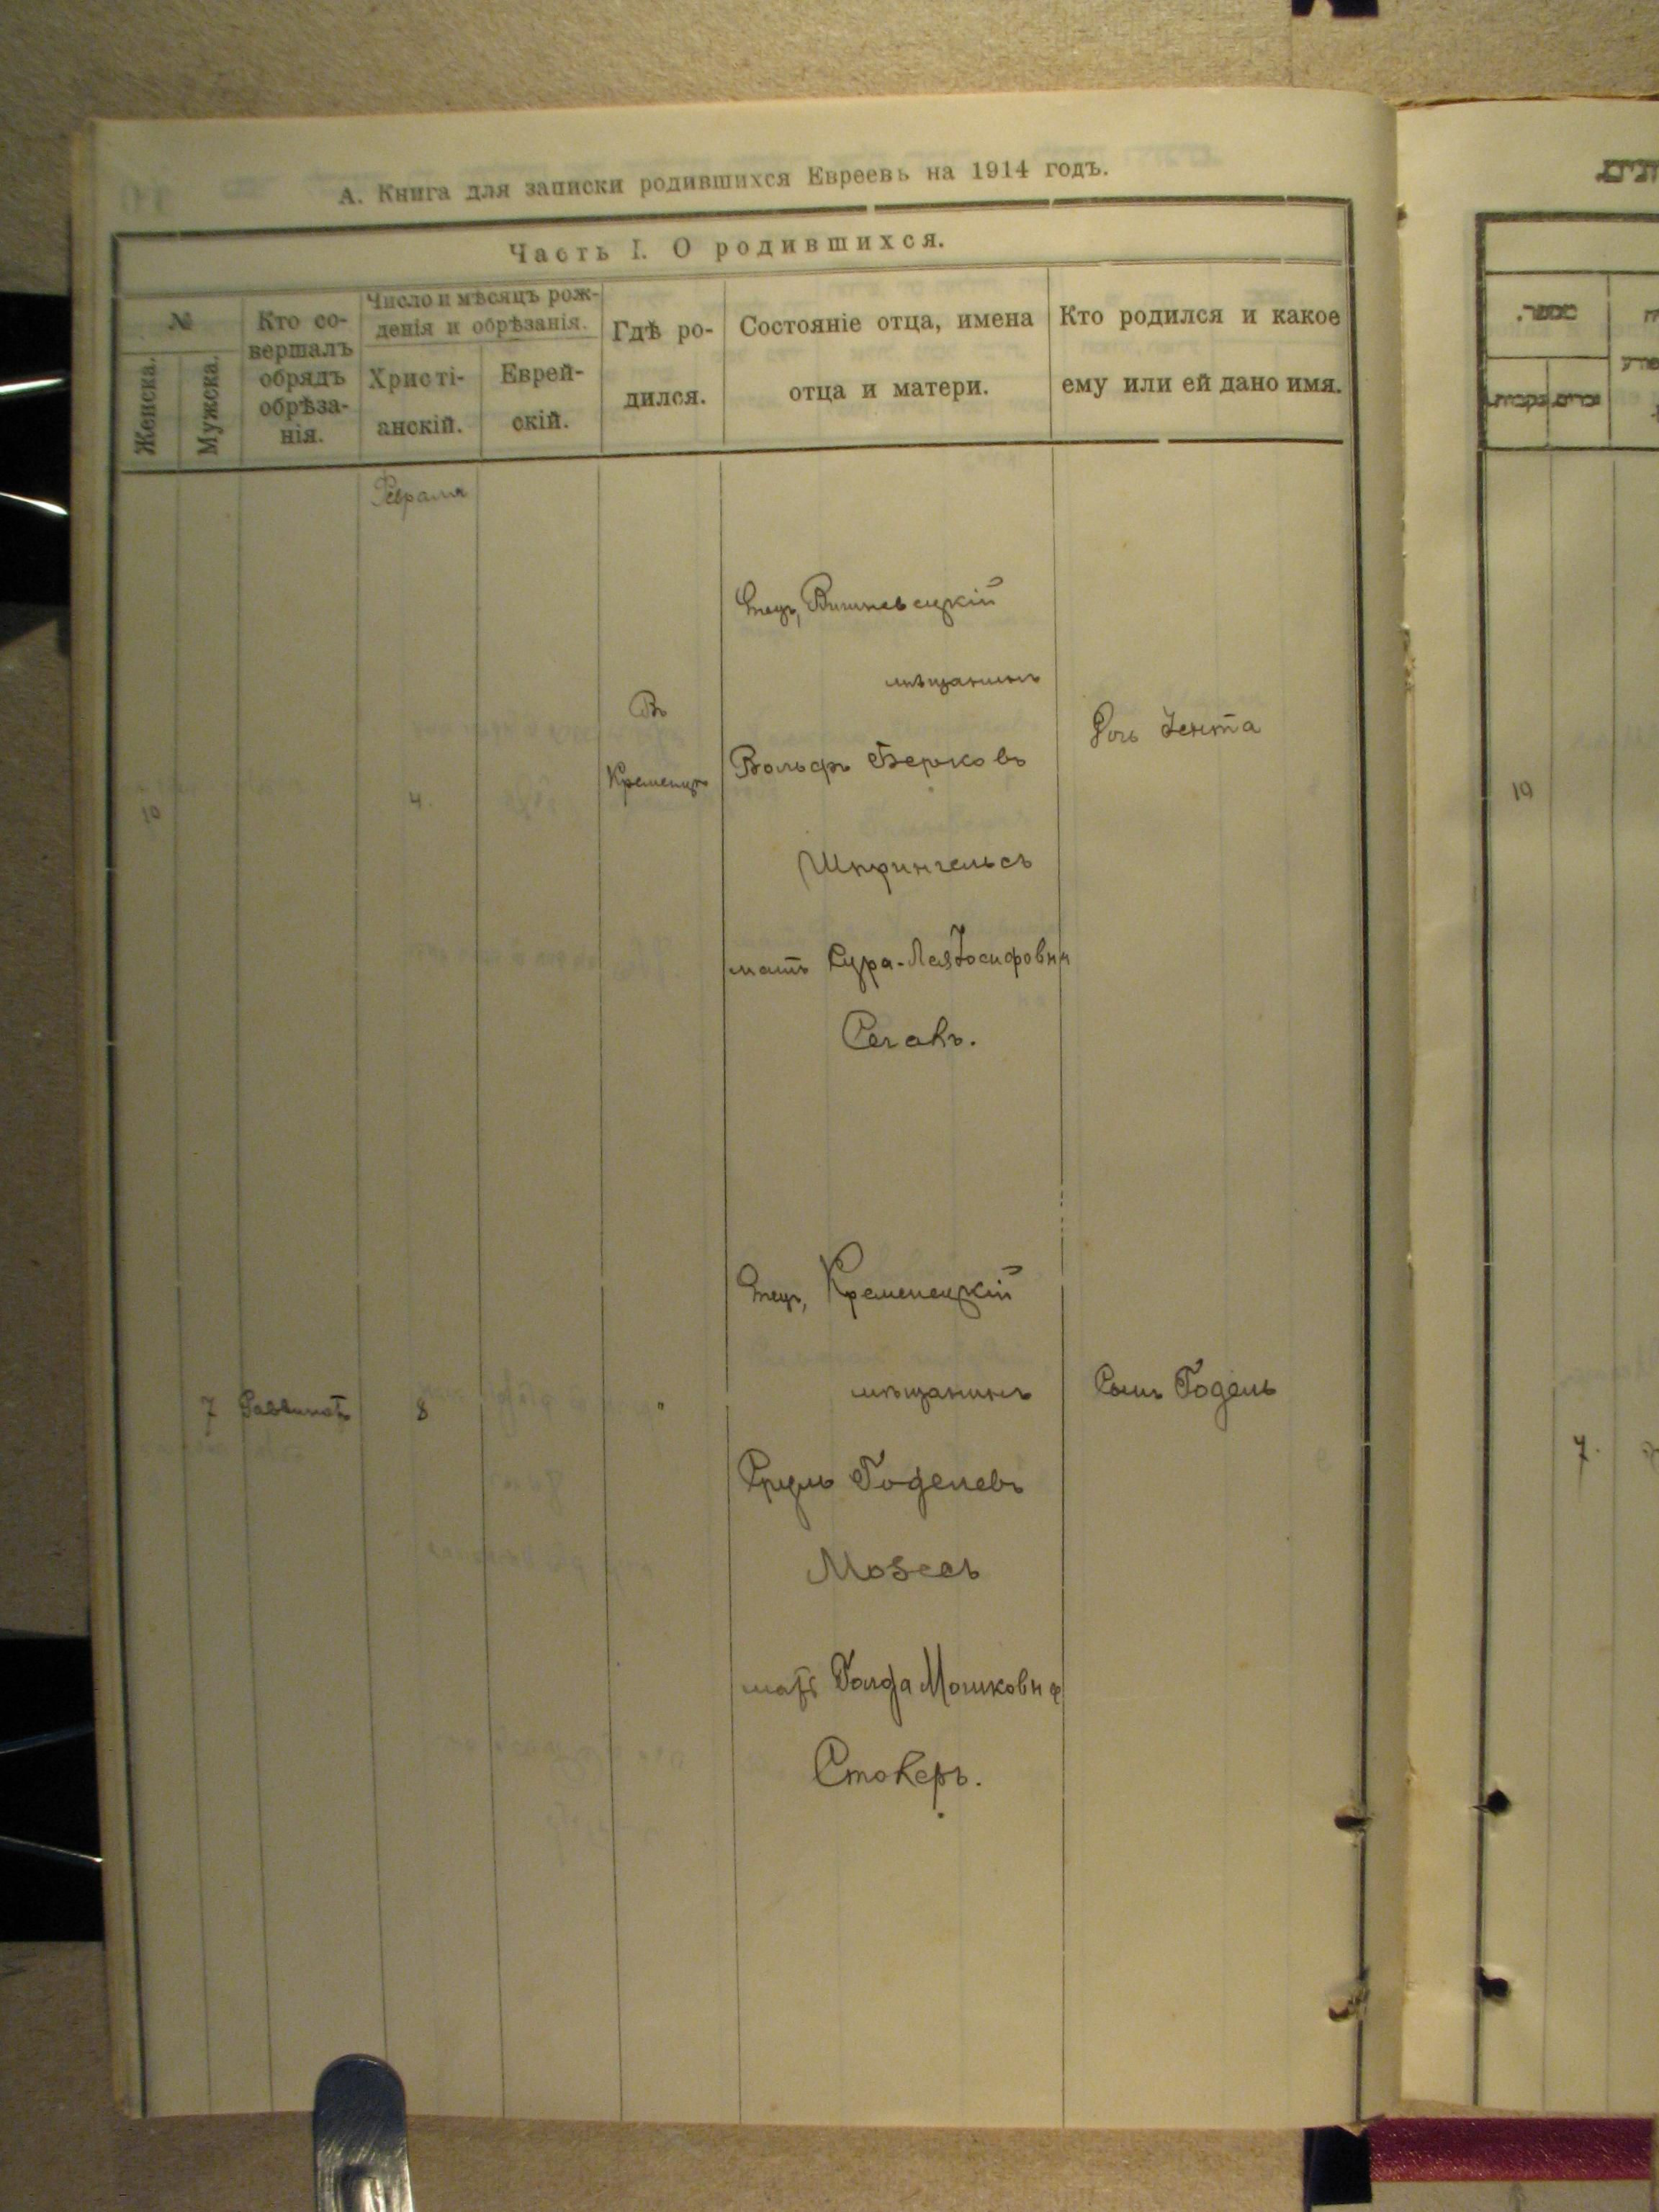 А. Книга для записки родившихся Евреевъ на 1914 годъ.
Часть I. О родившихся.
№
Женска.
Мужска.
Кто со-
вершалъ
обрядъ
обрѣза-
нія.
Число и мѣсяцъ рож-
денія и обрѣзанія.
Христі-
анскій.
Еврей-
скій.
Гдѣ ро-
дился.
Состояніе отца, имена
отца и матери.
Кто родился и какое
ему или ей дано имя.
Февраля
10
4.
Въ
Кременцѣ
Отецъ, Вишневецкій
мѣщанинъ
Вольфъ Берковъ
Шпрингельсъ
мать Сура-Лея Іосифовна
Сегалъ.
Дочь Іента
10
7
Раввинатъ
8
"
Отецъ, Кременецкій
мѣщанинъ
Сруль Годелевъ
Мозесъ
мать Голда Мошковна
Стокеръ.
Сынъ Годель
7.